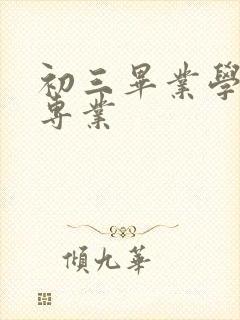 初三畢業學
專業
傾九華